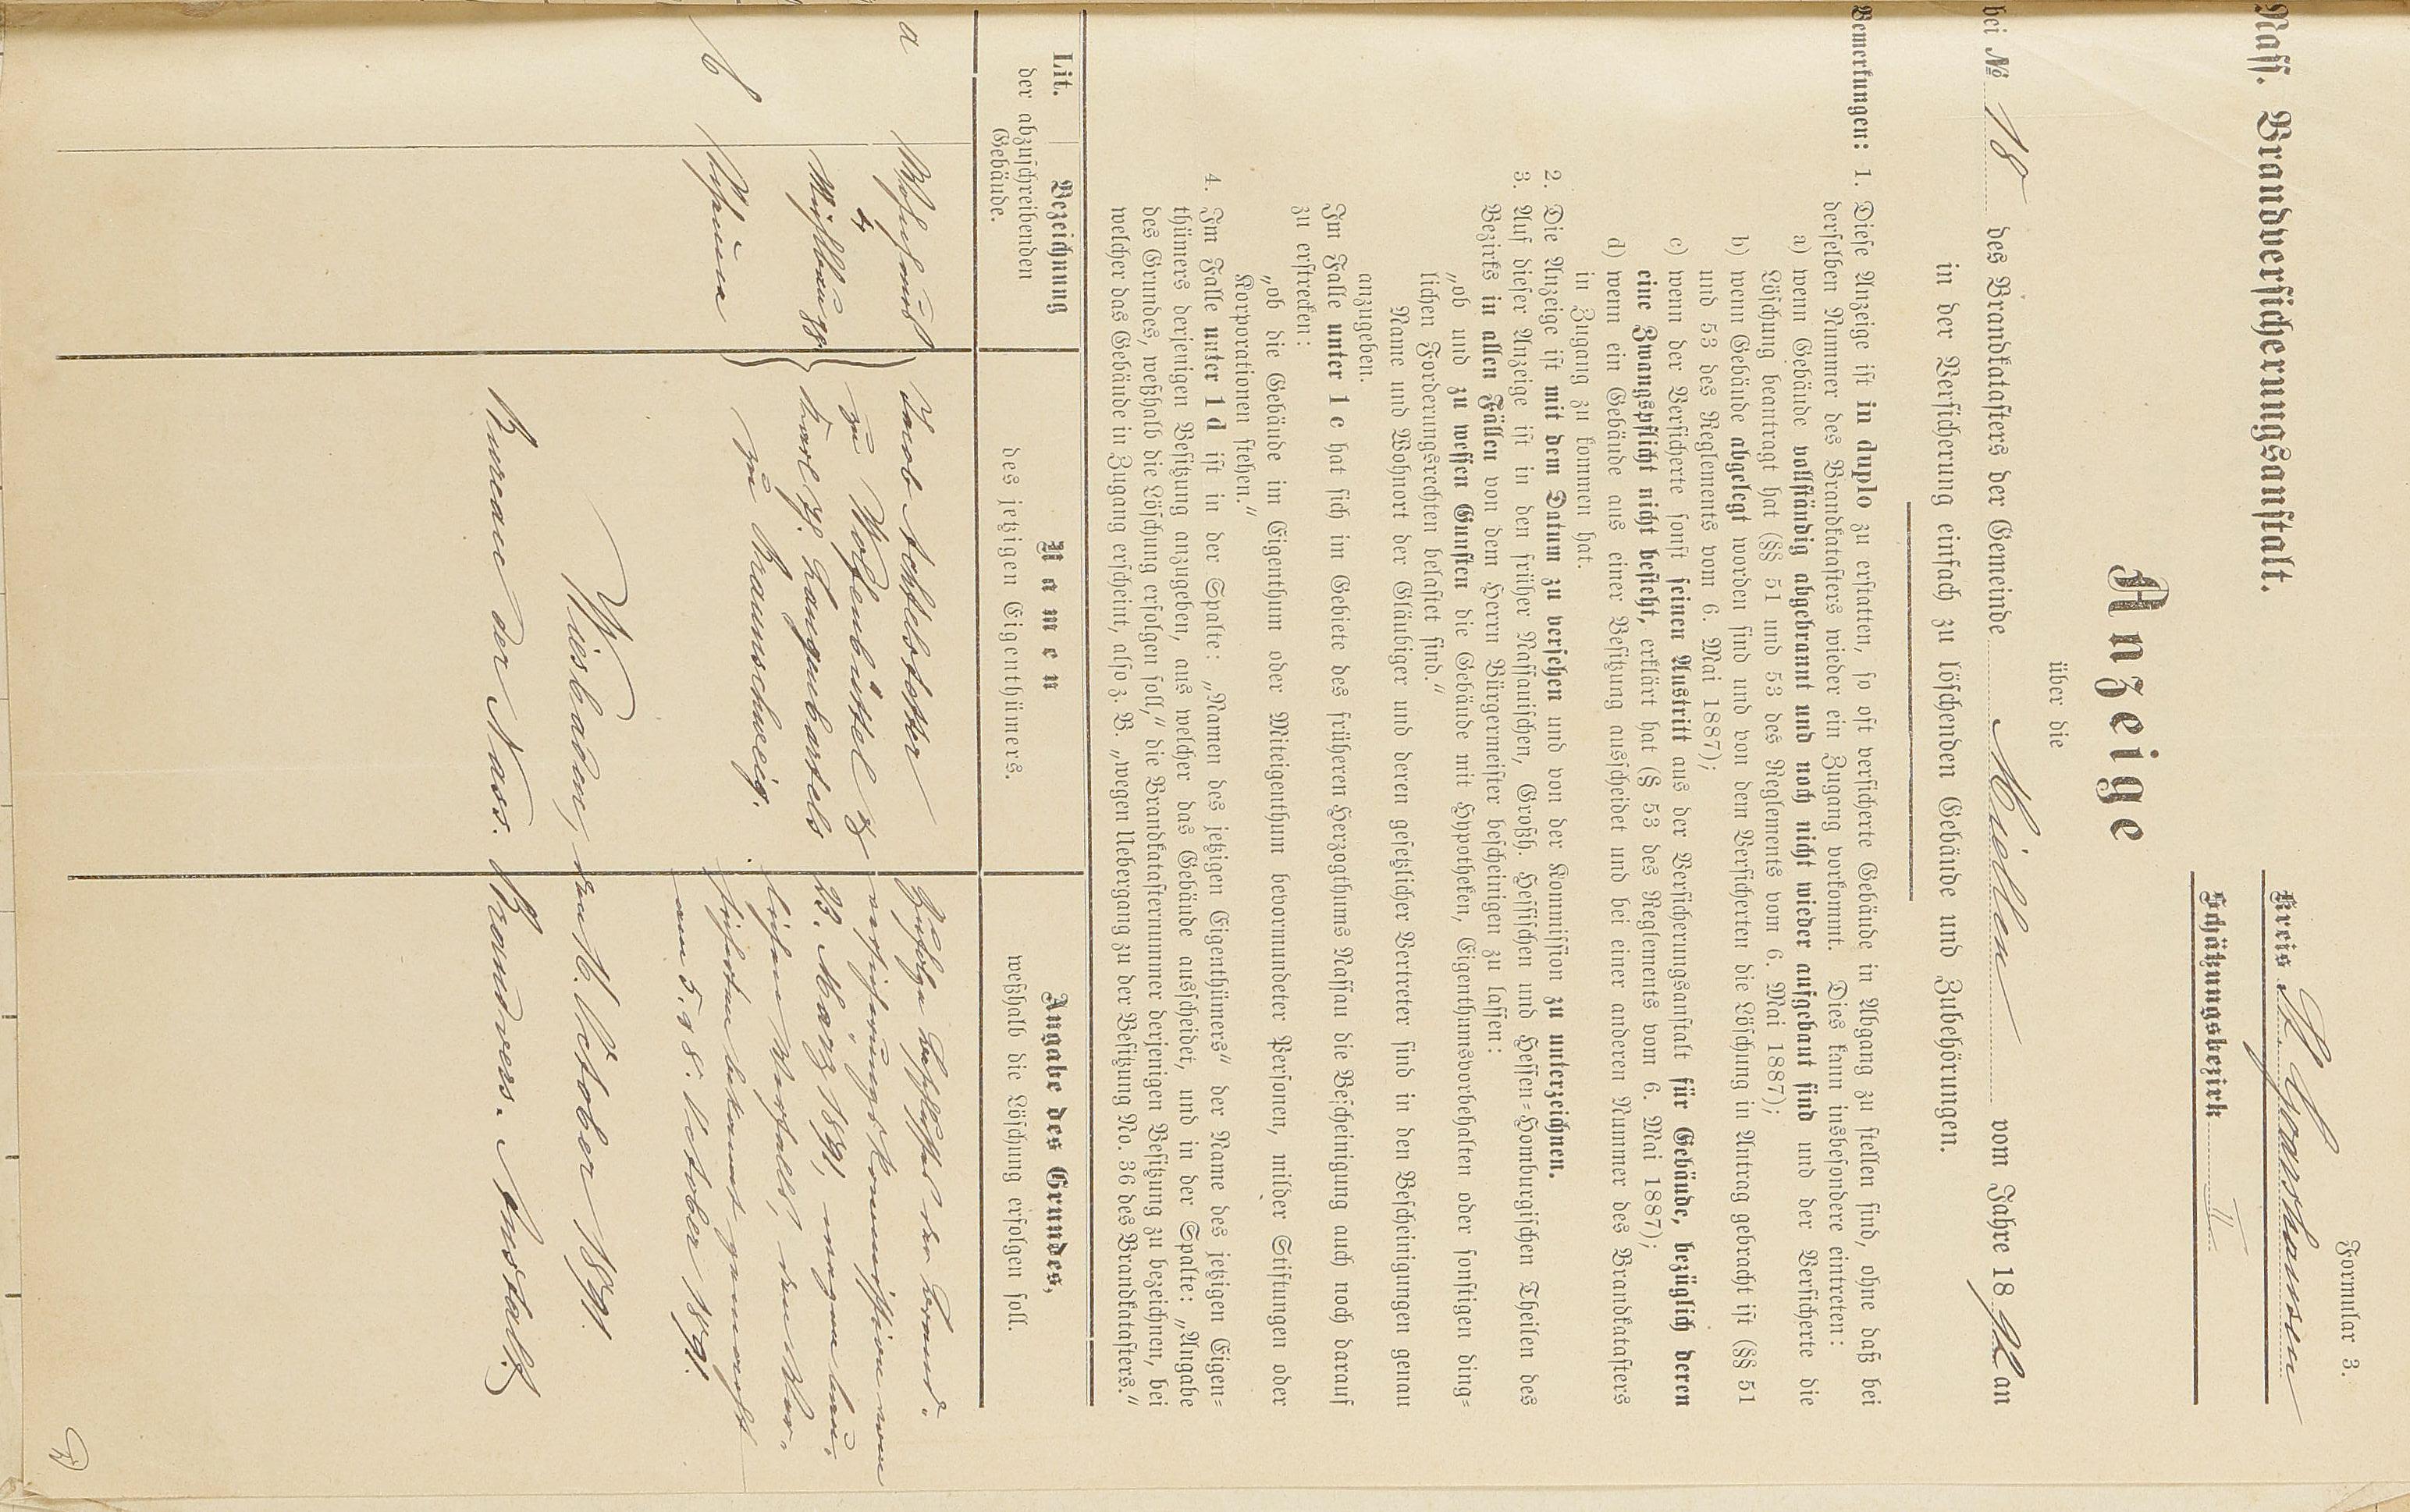 Formular 3.
Nass. Brandversicherungsanstalt.
Kreis St. Goarshausen
Schätzungsbezirk II
Anzeige
über die
bei № 18 des Brandkatasters der Gemeinde Miellen vom Jahre 1892 an
in der Versicherung einfach zu löschenden Gebäude und Zubehörungen.
Bemerkungen: 1. Diese Anzeige ist in duplo zu erstatten, so oft versicherte Gebäude in Abgang zu stellen sind, ohne daß bei
derselben Nummer des Brandkatasters wieder ein Zugang vorkommt. Dies kann insbesondere eintreten:
a) wenn Gebäude vollständig abgebrannt und noch nicht wieder aufgebaut sind und der Versicherte die
Löschung beantragt hat (§§ 51 und 53 des Reglements vom 6. Mai 1887);
b) wenn Gebäude abgelegt worden sind und von dem Versicherten die Löschung in Antrag gebracht ist (§§ 51
und 53 des Reglements vom 6. Mai 1887);
c) wenn der Versicherte sonst seinen Austritt aus der Versicherungsanstalt für Gebäude, bezüglich deren
eine Zwangspflicht nicht besteht, erklärt hat (§ 53 des Reglements vom 6. Mai 1887);
d) wenn ein Gebäude aus einer Besitzung ausscheidet und bei einer anderen Nummer des Brandkatasters
in Zugang zu kommen hat.
2. Die Anzeige ist mit dem Datum zu versehen und von der Kommission zu unterzeichnen.
3. Auf dieser Anzeige ist in den früher Nassauischen, Großh. Hessischen und Hessen-Homburgischen Theilen des
Bezirks in allen Fällen von dem Herrn Bürgermeister bescheinigen zu lassen:
„ob und zu wessen Gunsten die Gebäude mit Hypotheken, Eigenthumsvorbehalten oder sonstigen ding-
lichen Forderungsrechten belastet sind."
Name und Wohnort der Gläubiger und deren gesetzlicher Vertreter sind in den Bescheinigungen genau
anzugeben.
Im Falle unter 1 c hat sich im Gebiete des früheren Herzogthums Nassau die Bescheinigung auch noch darauf
zu erstrecken:
„ob die Gebäude im Eigenthum oder Miteigenthum bevormundeter Personen, milder Stiftungen oder
Korporationen stehen."
4. Im Falle unter 1 d ist in der Spalte: „Namen des jetzigen Eigenthümers" der Name des jetzigen Eigen-
thümers derjenigen Besitzung anzugeben, aus welcher das Gebäude ausscheidet, und in der Spalte: „Angabe
des Grundes, weßhalb die Löschung erfolgen soll," die Brandkatasternummer derjenigen Besitzung zu bezeichnen, bei
welcher das Gebäude in Zugang erscheint, also z. B. „wegen Uebergang zu der Besitzung No. 36 des Brandkatasters."
Lit. Bezeichnung
der abzuschreibenden
Gebäude.
Namen
des jetzigen Eigenthümers.
Angabe des Grundes,
weßhalb die Löschung erfolgen soll.
a Wohnhaus
b Scheuer
Jacob Achtelstetter
zu Wolfenbüttel &
Karl H. Langenbartels
zu Braunschweig.
Zufolge Beschlusses der Brand-
versicherungskommission vom
23. März 1891, wegen bau-
lichen Verfalls, den Vor-
am 5. 18. October 1891.
Wiesbaden, den 16. October 1891.
Bureau der Nass. Brandvers. Anstalt.